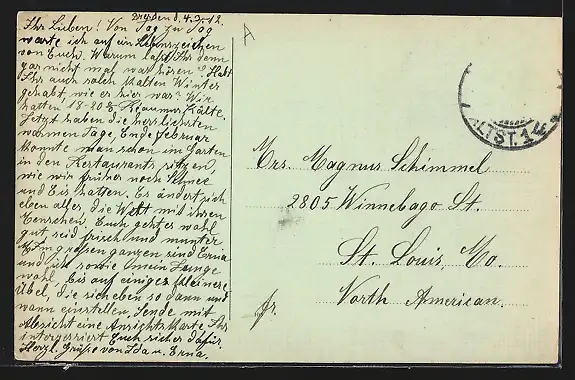 Dresden d. 4.3.12.
Ihr Lieben! Von Tag zu Tag
warte ich auf ein Lebenszeichen
von Euch. Warum laßt Ihr denn
gar nicht mal was hören? Habt
Ihr auch solch kalten Winter
gehabt, wie er hier war? Wir
hatten 18-20° Reaumur Kälte.
Jetzt haben die herrlichsten
warmen Tage, Ende Februar
konnte man schon im Garten
in den Restaurants sitzen,
wie wir früher noch Schnee
und Eis hatten. Es ändert sich
eben alles, die Welt mit ihren
Menschen. Euch geht es wohl
gut seid frisch und munter
Im grossen ganzen sind Erna
und ich sowie mein Junge
wohl bis auf einiges kleinere
Übel, die sich eben so dann und
wann einstellen. Sende mit
Absicht eine Ansichtskarte, Ihr
interessiert Euch sicher dafür.
Herzl. Grüße von Ida u. Erna.
A
ALTST. 14
Mrs. Magnus Schimmel
2805 Winnebago St.
St. Louis, Mo.
North American.
fr.